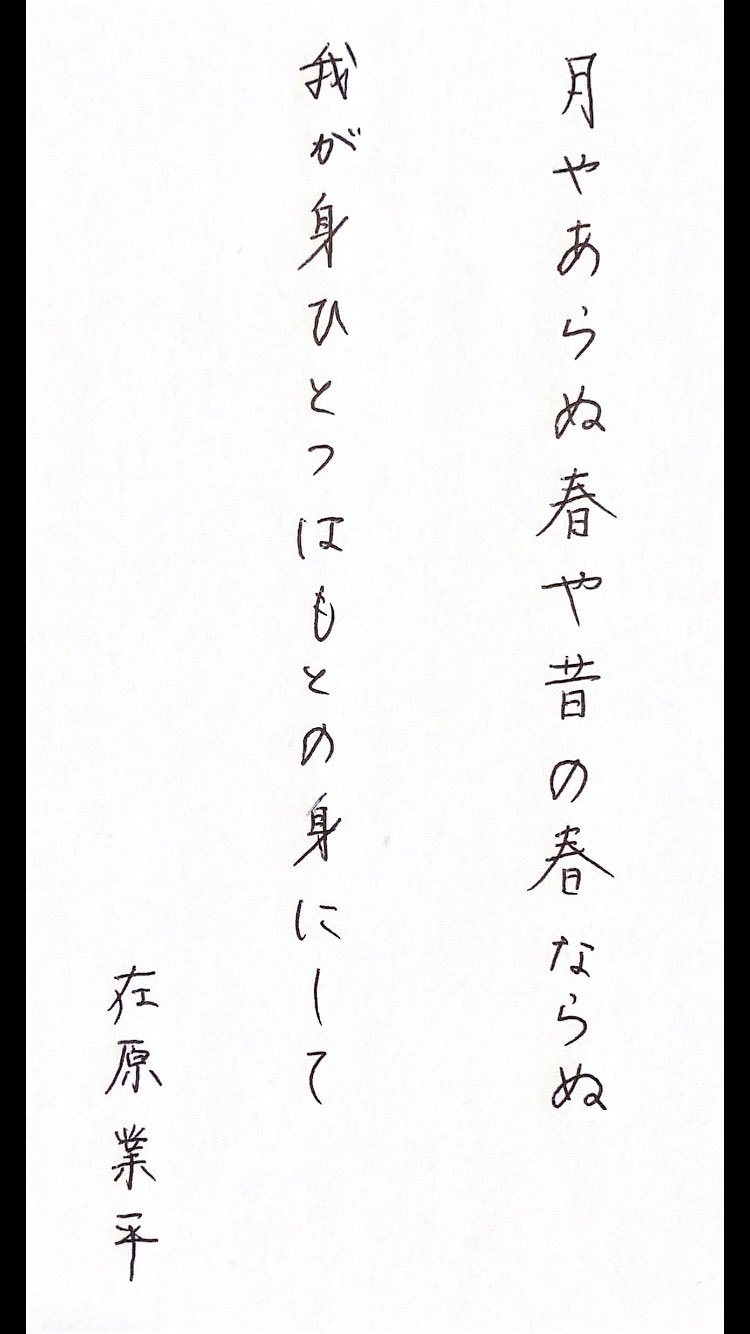 月やあらぬ春や昔の春ならぬ
我が身ひとつはもとの身にして
在原業平